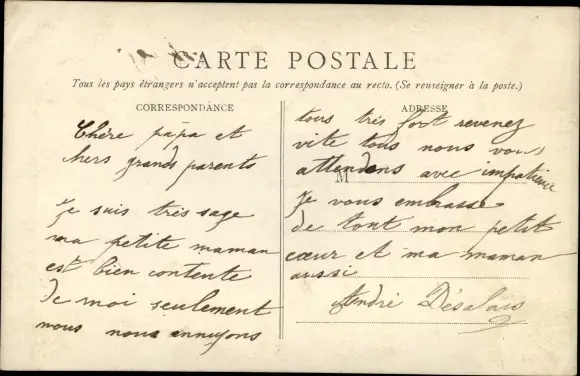 CARTE POSTALE
Tous les pays étrangers n'acceptent pas la correspondance au recto. (Se renseigner à la poste.)
CORRESPONDANCE
Chère papa et
hers grands parents
Je suis très sage
ma petite maman
est bien contente
de moi seulement
nous nous ennuyons
ADRESSE
M
tous très fort revenez
vite tous nous vous
attendons avec impatience
Je vous embrasse
de tout mon petit
cœur et ma maman
aussi
André Désalais